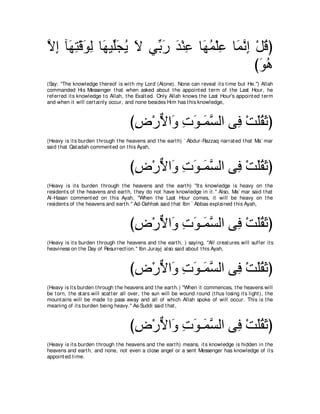 ﴿قُلْ إِنَّمَا عِلْمُهَا عِنْدَ رَبِّي لَا يُجَلِّيهَا لِوَقْتِهَآ إِلاَّ
هُوَ﴾
(Say: "The knowledge thereof is with my Lord (Alone). None can reveal its time but He.") Allah
commanded His Messenger that when asked about the appointed term of the Last Hour, he
referred its knowledge to Allah, the Exalted. Only Allah knows the Last Hour's appointed term
and when it will certainly occur, and none besides Him has this knowledge,
﴿ثَقُلَتْ فِى السَّمَـوَتِ وَالاٌّرْضِ﴾
(Heavy is its burden through the heavens and the earth) `Abdur-Razzaq narrated that Ma`mar
said that Qatadah commented on this Ayah,
﴿ثَقُلَتْ فِى السَّمَـوَتِ وَالاٌّرْضِ﴾
(Heavy is its burden through the heavens and the earth) "Its knowledge is heavy on the
residents of the heavens and earth, they do not have knowledge in it." Also, Ma`mar said that
Al-Hasan commented on this Ayah, "When the Last Hour comes, it will be heavy on the
residents of the heavens and earth." Ad-Dahhak said that Ibn `Abbas explained this Ayah,
﴿ثَقُلَتْ فِى السَّمَـوَتِ وَالاٌّرْضِ﴾
(Heavy is its burden through the heavens and the earth.) saying, "All creatures will suffer its
heaviness on the Day of Resurrection." Ibn Jurayj also said about this Ayah,
﴿ثَقُلَتْ فِى السَّمَـوَتِ وَالاٌّرْضِ﴾
(Heavy is its burden through the heavens and the earth.) "When it commences, the heavens will
be torn, the stars will scatter all over, the sun will be wound round (thus losing its light), the
mountains will be made to pass away and all of which Allah spoke of will occur. This is the
meaning of its burden being heavy." As-Suddi said that,
﴿ثَقُلَتْ فِى السَّمَـوَتِ وَالاٌّرْضِ﴾
(Heavy is its burden through the heavens and the earth) means, its knowledge is hidden in the
heavens and earth, and none, not even a close angel or a sent Messenger has knowledge of its
appointed time.